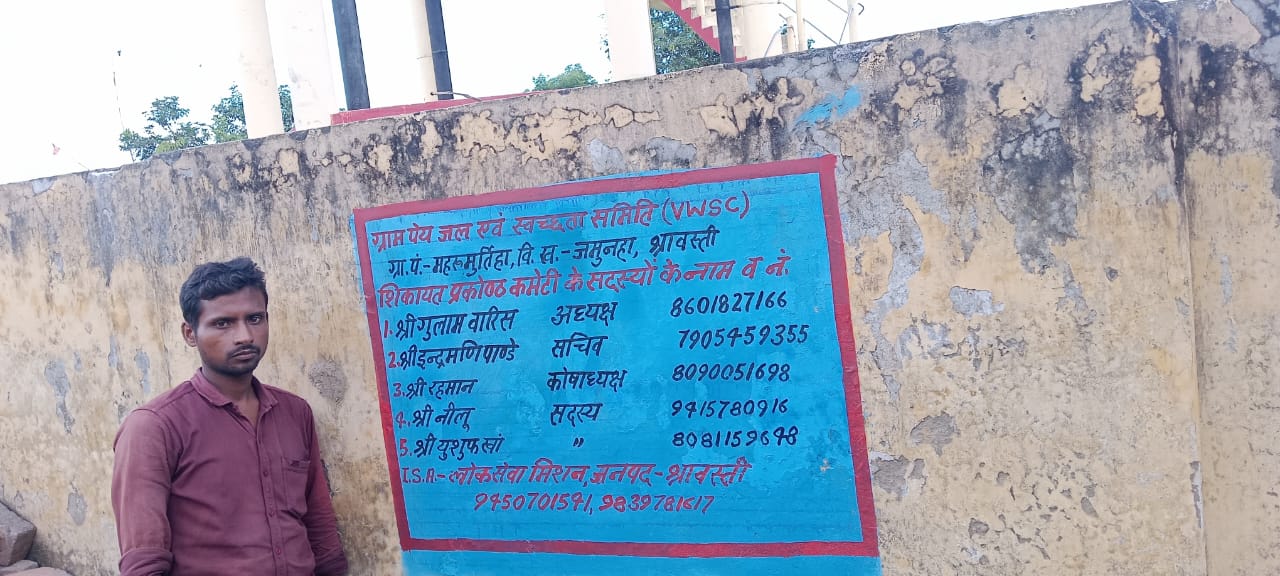 ग्राम पेय जल एवं स्वच्छता समिति (VWSC)
ग्रा.पं.-महरूमुर्तिहा, वि.ख.-जमुनहा, श्रावस्ती
शिकायत प्रकोष्ठ कमेटी के सदस्यों के नाम व नं.
1. श्री गुलाम वारिस अध्यक्ष 8601827166
2. श्री इन्द्रमणि पाण्डे सचिव 7905459355
3. श्री रहमान कोषाध्यक्ष 8090051698
4. श्री नीलू सदस्य 9415780916
5. श्री युशुफ खां " 8081159648
I.S.A.- लोकसेवा मिशन, जनपद-श्रावस्ती
9450701541, 9839781617